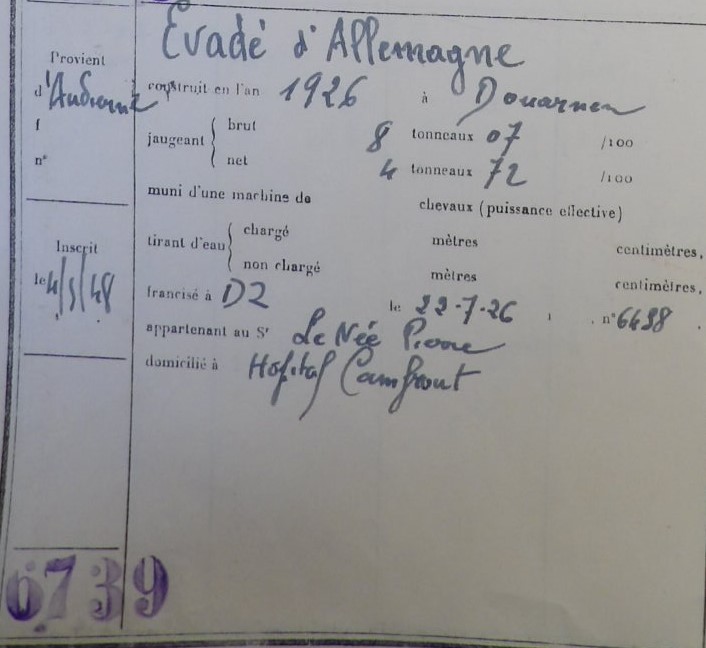 Evadé d'Allemagne
Provient
d'Audierne
f
n°
construit en l'an 1926 à Douarnen
jaugeant { brut 8 tonneaux 07 /100
net 4 tonneaux 72 /100
muni d'une machine de chevaux (puissance effective)
Inscrit
le 4/3/48
tirant d'eau { chargé mètres centimètres,
non chargé mètres centimètres,
francisé à DZ le 22-7-26 , n° 6498 .
appartenant au Sr Le Née Pierre
domicilié à Hopital Camfrout
6739